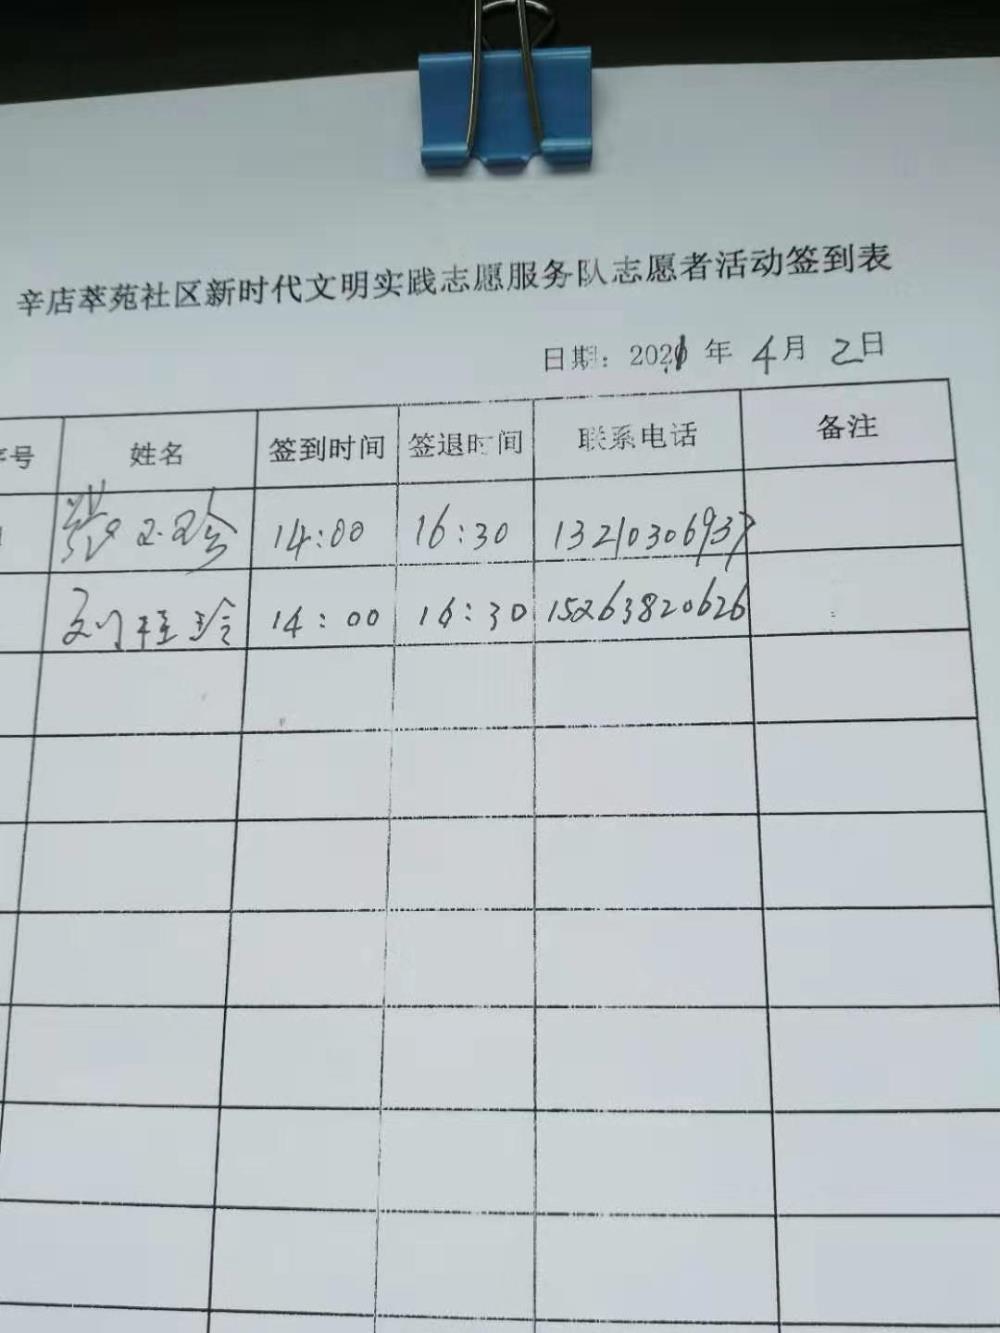 辛店萃苑社区新时代文明实践志愿服务队志愿者活动签到表
日期：2021年 4月 2日
序号 姓名 签到时间 签退时间 联系电话 备注
14:00 16:30 13210306937
刘桂玲 14:00 16:30 15263820626